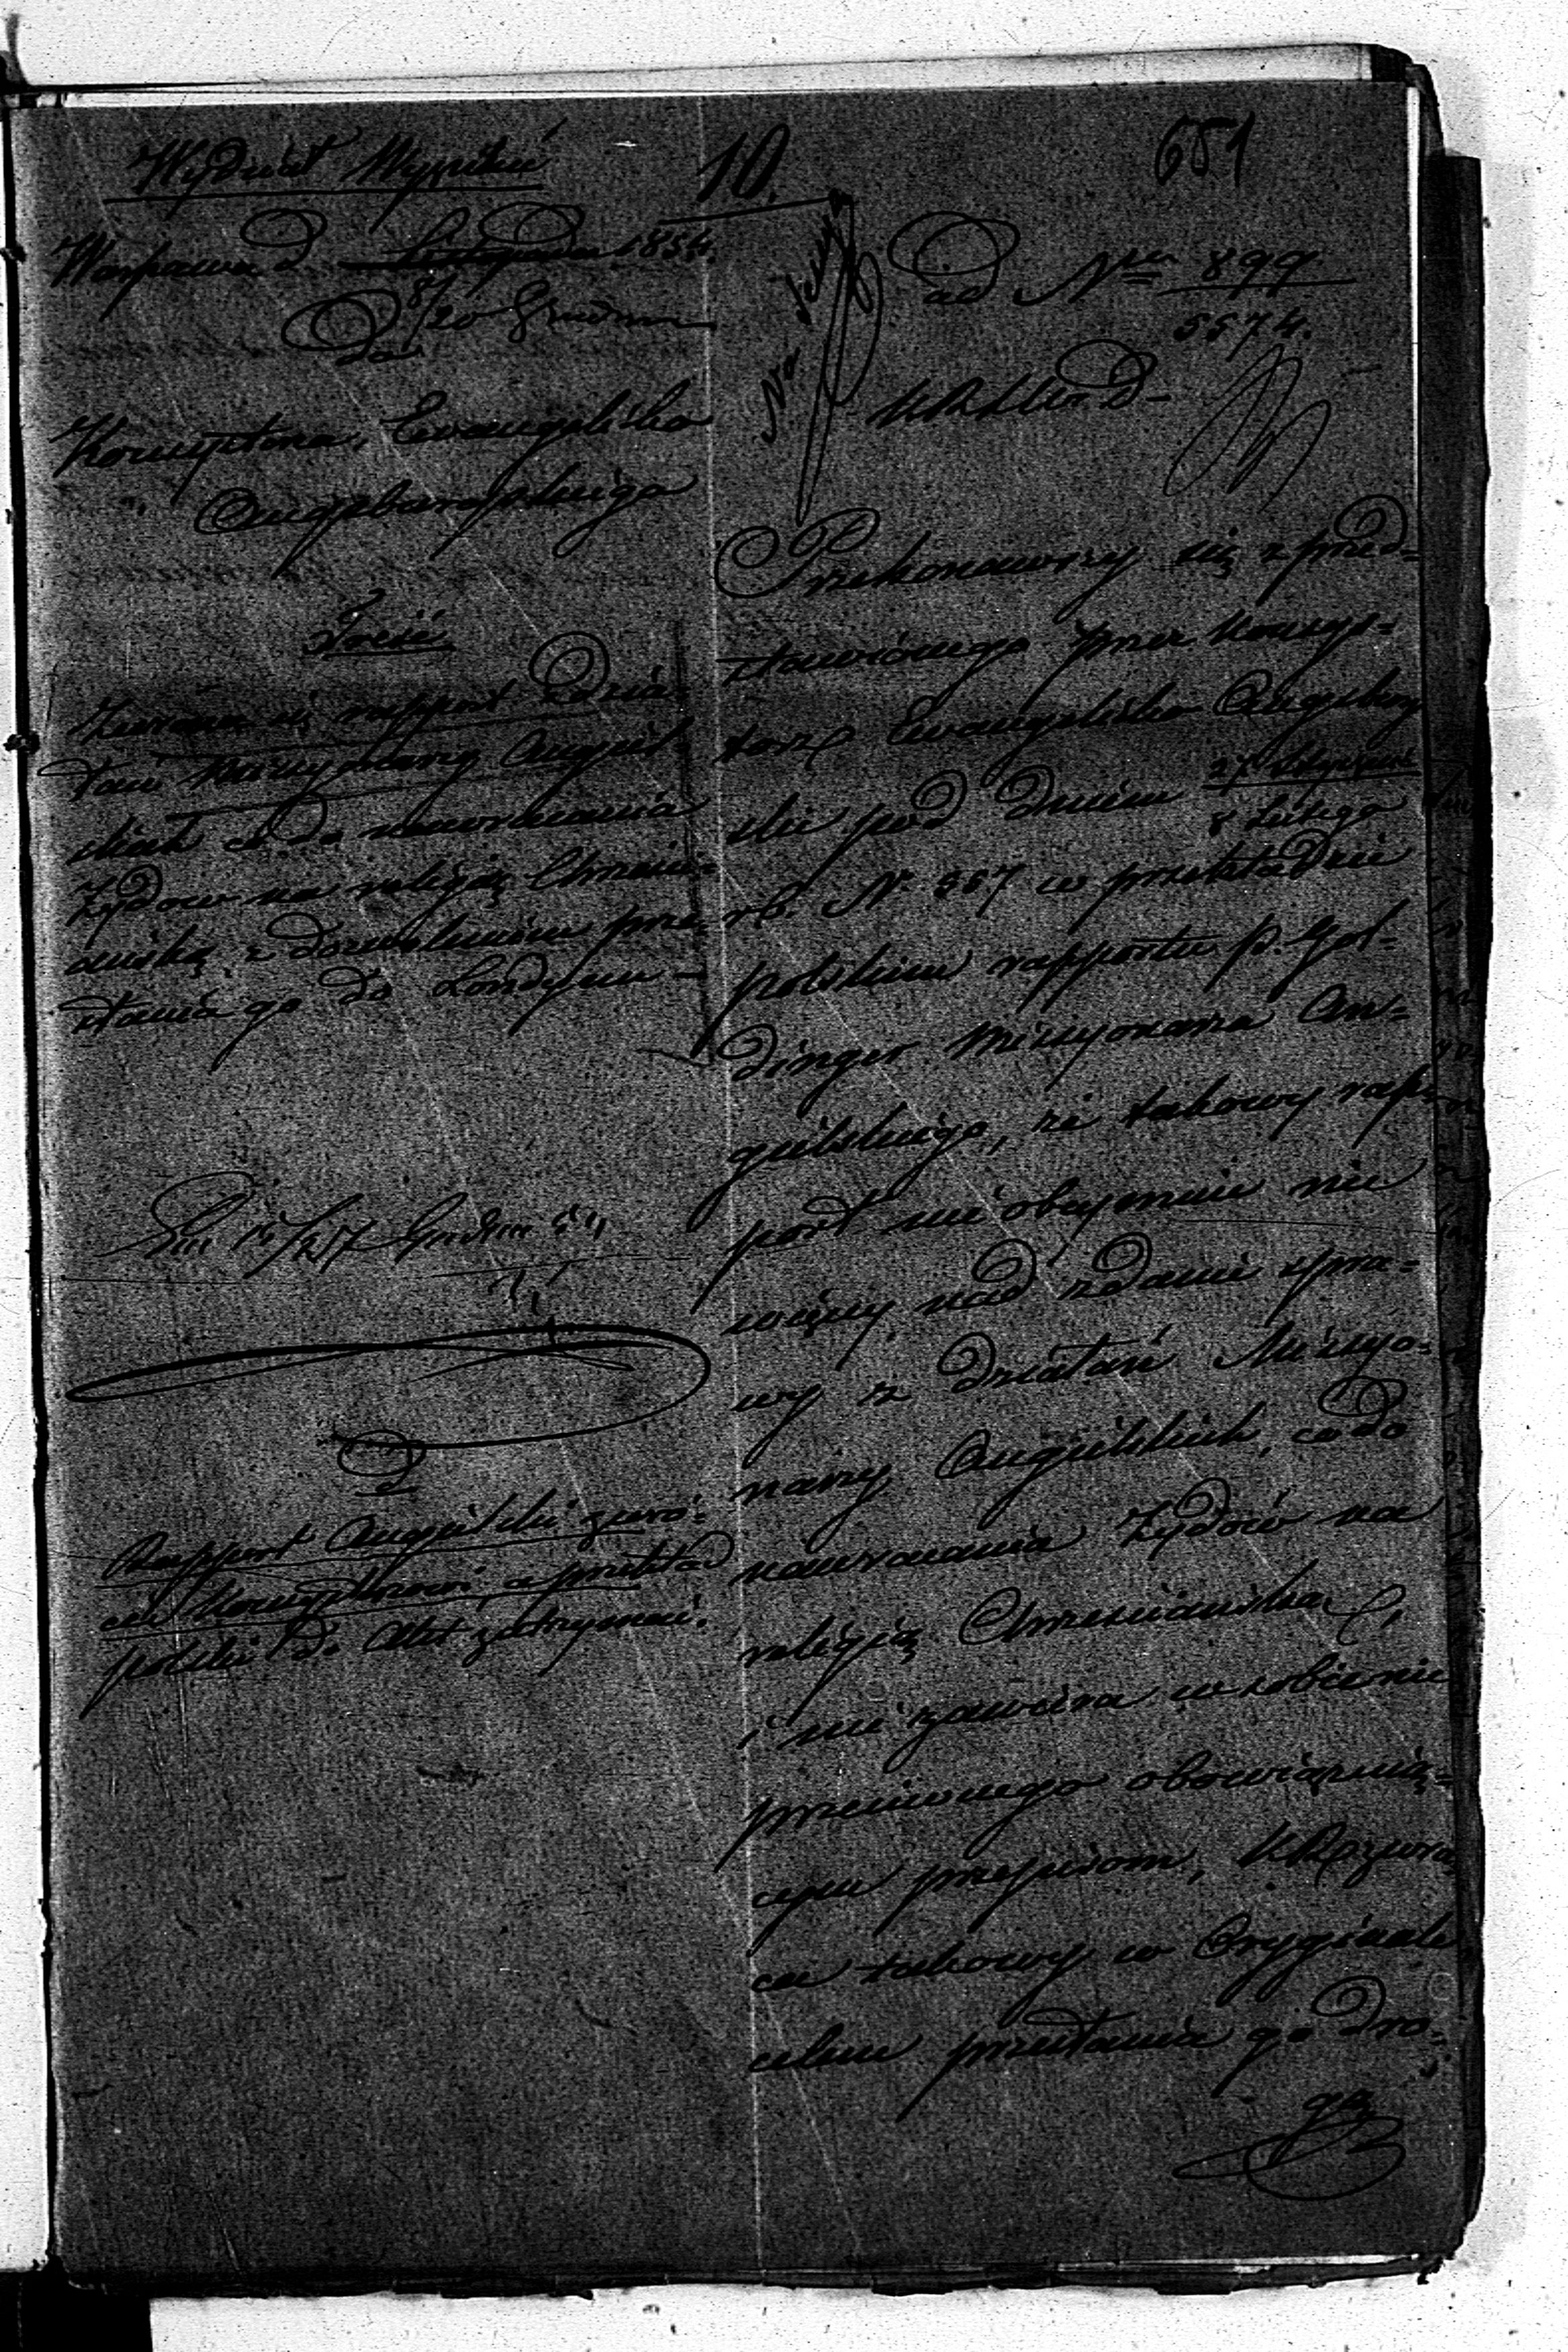 Wydział Wyznań
10.
651
Warszawa d. Listopada 1854.
8/20 Grudnia
Do
Konsystorza Ewangelicko
Augsburgskiego
Treść
Zwraca się rapport z dzia-
łań Missyonarzy Angiel
skich co do nawracania
Żydów na religią Chrześci-
ańską z dozwoleniem prze-
słania go do Londynu –
15/27 Grudnia 54
Rapport Angielski zwró-
cić Konsystorzowi a przekład
polski do Akt zatrzymać.
ad Nru 899
5574.
Przekonawszy się z przed-
stawionego przez Konsys-
torz Ewangelicko Augsburg
ski pod dniem 27 Stycznia
8 Lutego
rb. N. 567 w przekładzie
polskim rapportu p. Gol-
dinger Missyonarza An-
gielskiego, że takowy rap-
port nie obejmuje nic
więcej nad zdanie spra-
wy z działań Missyo-
narzy Angielskich, co do
nawracania Żydów na
religią Chrześciańską,
i nie zawiera w sobie nic
przeciwnego obowiązują-
cym przepisom, KR zwra
ca takowy w Oryginale
celem przesłania go dro-
gą